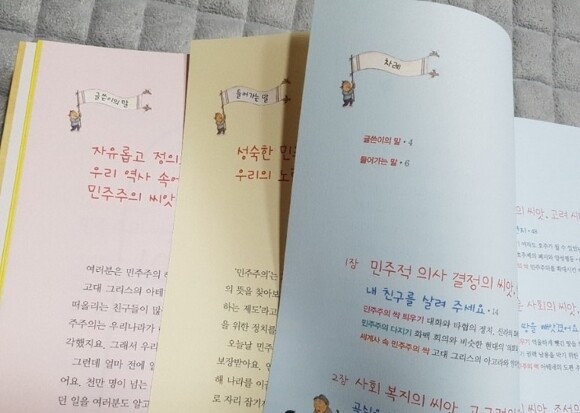 글쓴이의 말
자유롭고 정의
우리 역사 속에
민주주의 씨앗
여러분은 민주주의
고대 그리스의 아테
떠올리는 친구들이 많
주주의는 우리나라가
각했지요. 그래서 우리
그런데 얼마 전에
어요. 천만 명이 넘는
던 일을 여러분도 알고
들어가는 말
성숙한 민
우리의 노
'민주주의'는
의 뜻을 찾아보
하는 제도'라고
을 위한 정치를
오늘날 민주
보장받아요.
해 나라를 이
로 자리 잡기
차례
글쓴이의 말 • 4
들어가는 말 • 6
1장 민주적 의사 결정의 씨앗,
내 친구를 살려 주세요 • 14
민주주의 싹 틔우기 대화와 타협의 정치, 신라의 화
민주주의 다지기 화백 회의와 비슷한 현대의
세계사 속 민주주의 싹 고대 그리스의 아고라와
2장 사회 복지의 씨앗, 고구려
의 씨앗, 고려 시
사회의 씨앗,
땅을 빼앗겼어요
씨앗, 조선